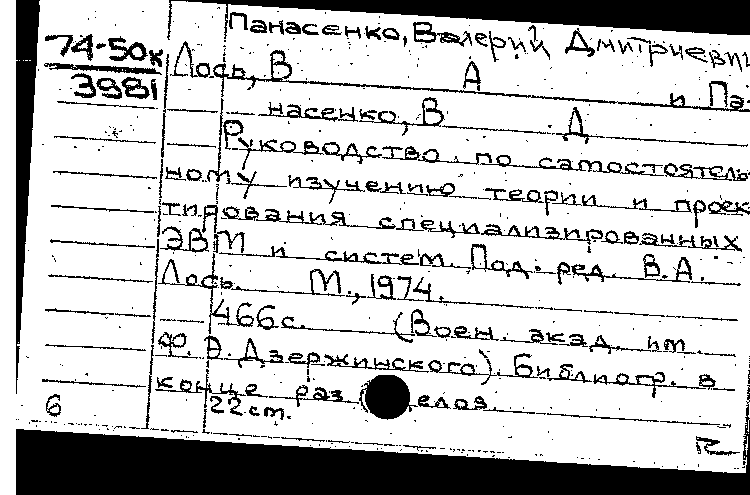 Панасенко, Валерий Дмитриевич
74-50к
3981
Лось, В А и Па-
насенко, В Д
Руководство по самостоятель-
ному изучению теории и проек-
тирования специализированных
ЭВМ и систем. Под. ред. В.А.
Лось. М., 1974.
466с. (Воен. акад. им.
Ф. Э. Дзержинского). Библиогр. в
конце раз елов.
22 см.
6